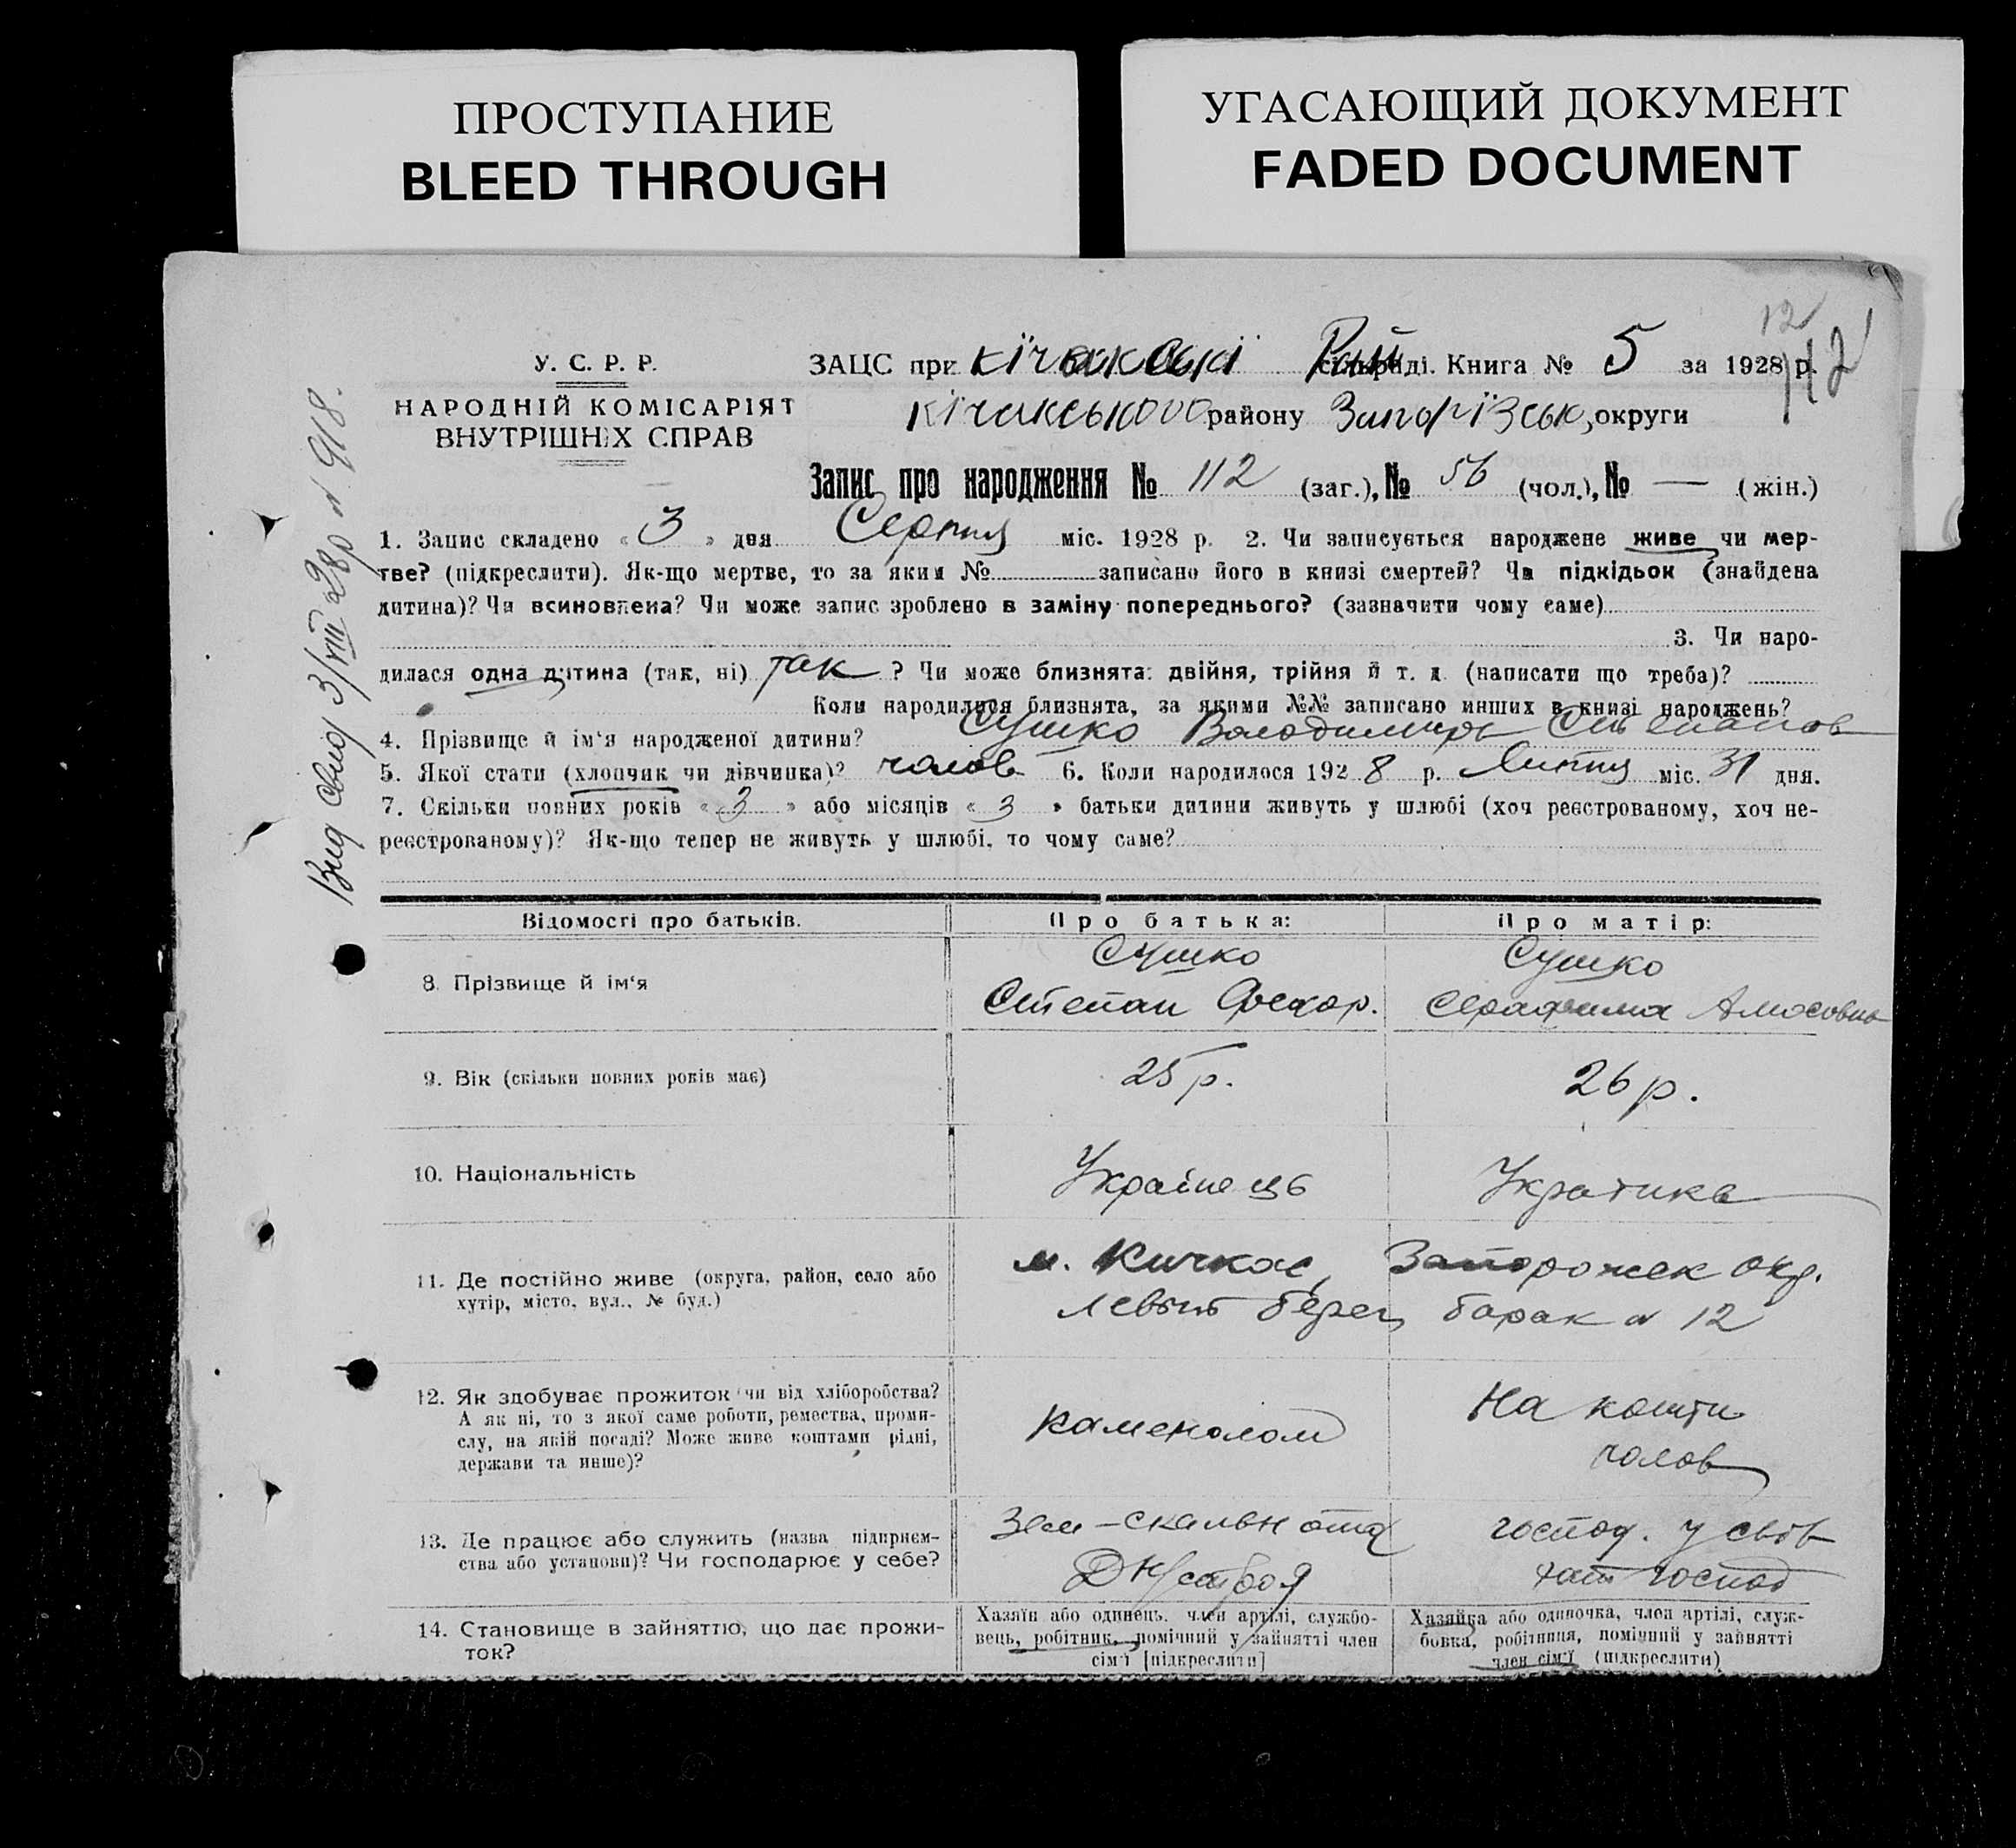 ПРОСТУПАНИЕ
BLEED THROUGH
УГАСАЮЩИЙ ДОКУМЕНТ
FADED DOCUMENT
12
112
У. С. Р. Р.
НАРОДНІЙ КОМІСАРІЯТ
ВНУТРІШНІХ СПРАВ
ЗАЦС при Рай сільраді. Книга № 5 за 1928 р.
району округи
Запис про народження № 112 (заг.), № 56 (чол.), № — (жін.)
Вид свид 3/VIII 28р № 918.
1. Запис складено « 3 » дня Серпня міс. 1928 р. 2. Чи записується народжене живе чи мер-
тве? (підкреслити). Як-що мертве, то за яким № записано його в книзі смертей? Чи підкідьок (знайдена
дитина)? Чи всиновлена? Чи може запис зроблено в заміну попереднього? (зазначити чому саме)
3. Чи наро-
дилася одна дитина (так, ні) так ? Чи може близнята: двійня, трійня й т. д. (написати що треба)?
Коли народилися близнята, за якими №№ записано инших в книзі народжень?
4. Прізвище й ім‘я народженої дитини? Сушко Володимир Степанов
5. Якої стати (хлопчик чи дівчинка)? чолов 6. Коли народилося 192 8 р. Липня міс. 31 дня.
7. Скільки повних років « 3 » або місяців « 3 » батьки дитини живуть у шлюбі (хоч реєстрованому, хоч не-
реєстрованому)? Як-що тепер не живуть у шлюбі, то чому саме?
Відомості про батьків. Про батька: Про матір:
8. Прізвище й ім‘я
Сушко
Степан Федор.
Сушко
Серафима Амосовна
9. Вік (скільки повних років має) 25 р. 26 р.
10. Національність Українець Українка
11. Де постійно живе (округа, район, село або
хутір, місто, вул., № буд.)
м. Кичкас, Запорожск окр.
левый берег, барак № 12
12. Як здобуває прожиток чи від хліборобства?
А як ні, то з якої саме роботи, ремества, проми-
слу, на якій посаді? Може живе коштами рідні,
держави та инше)?
каменолом
На кошти
чолов
13. Де працює або служить (назва підприєм-
ства або установи)? Чи господарює у себе?
Зем-скальн отд
господ. у своє
господ
14. Становище в зайняттю, що дає прожи-
ток?
Хазяїн або одинець, член артілі, службо-
вець, робітник, помічний у зайнятті член
сім‘ї [підкреслити]
Хазяйка або одиночка, член артілі, служ-
бовка, робітниця, помічний у зайнятті
член сім‘ї (підкреслити)